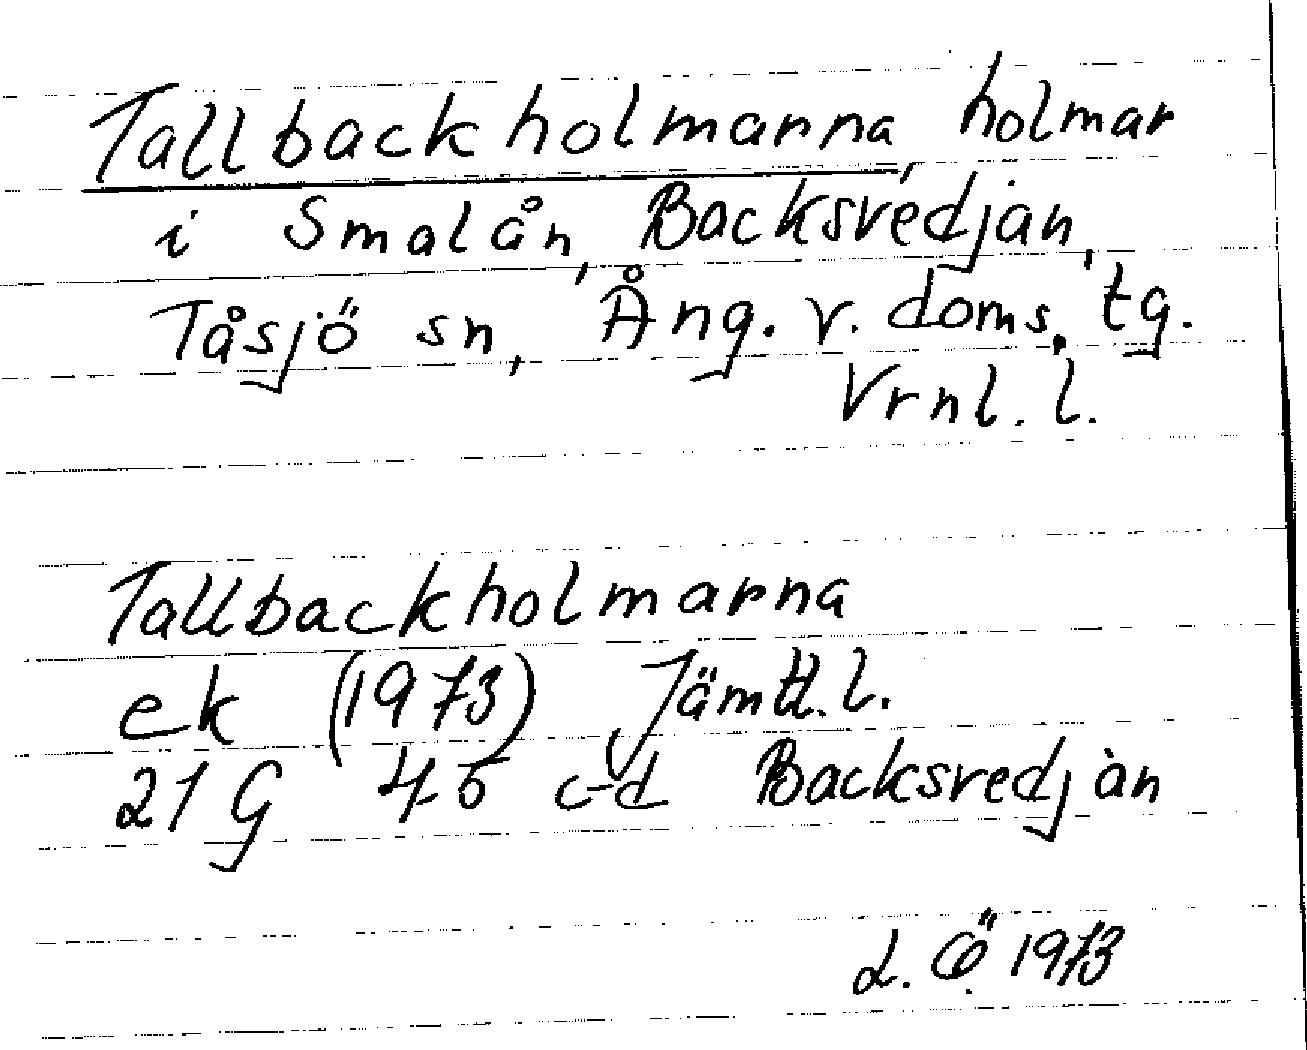 Tallbackholmarna, holmar
i Smalån, Backsvedjan,
Tåsjö sn, Ång. v. doms. tg.
Vrnl. l.
Tallbackholmarna
ek (1973) Jämtl. l.
21 G 45 c-d Backsvedjan
L. Ö. 1973